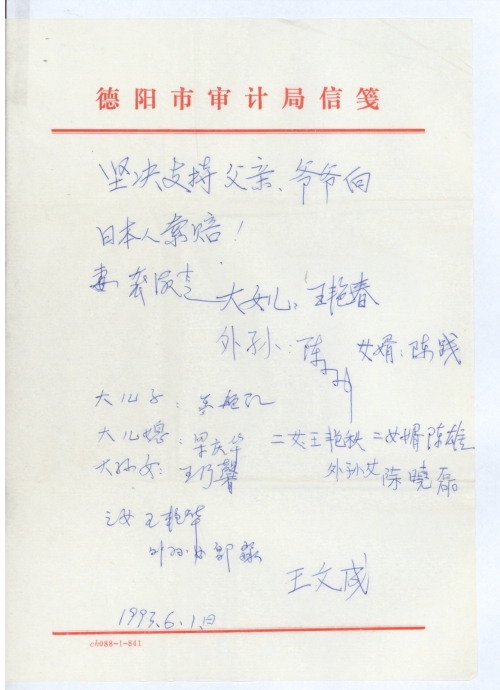 德阳市审计局信笺
坚决支持父亲、爷爷向
日本人索赔!
妻 大女儿:王艳春
外孙:陈 女婿:陈践
大儿子:
大儿媳: 梁庆华 二女王艳秋 二女婿 陈雄
大孙女: 王乃馨 外孙女 陈晓磊
三女 王艳华
外孙女
王文成
1993.6.1日
ch088-1-841